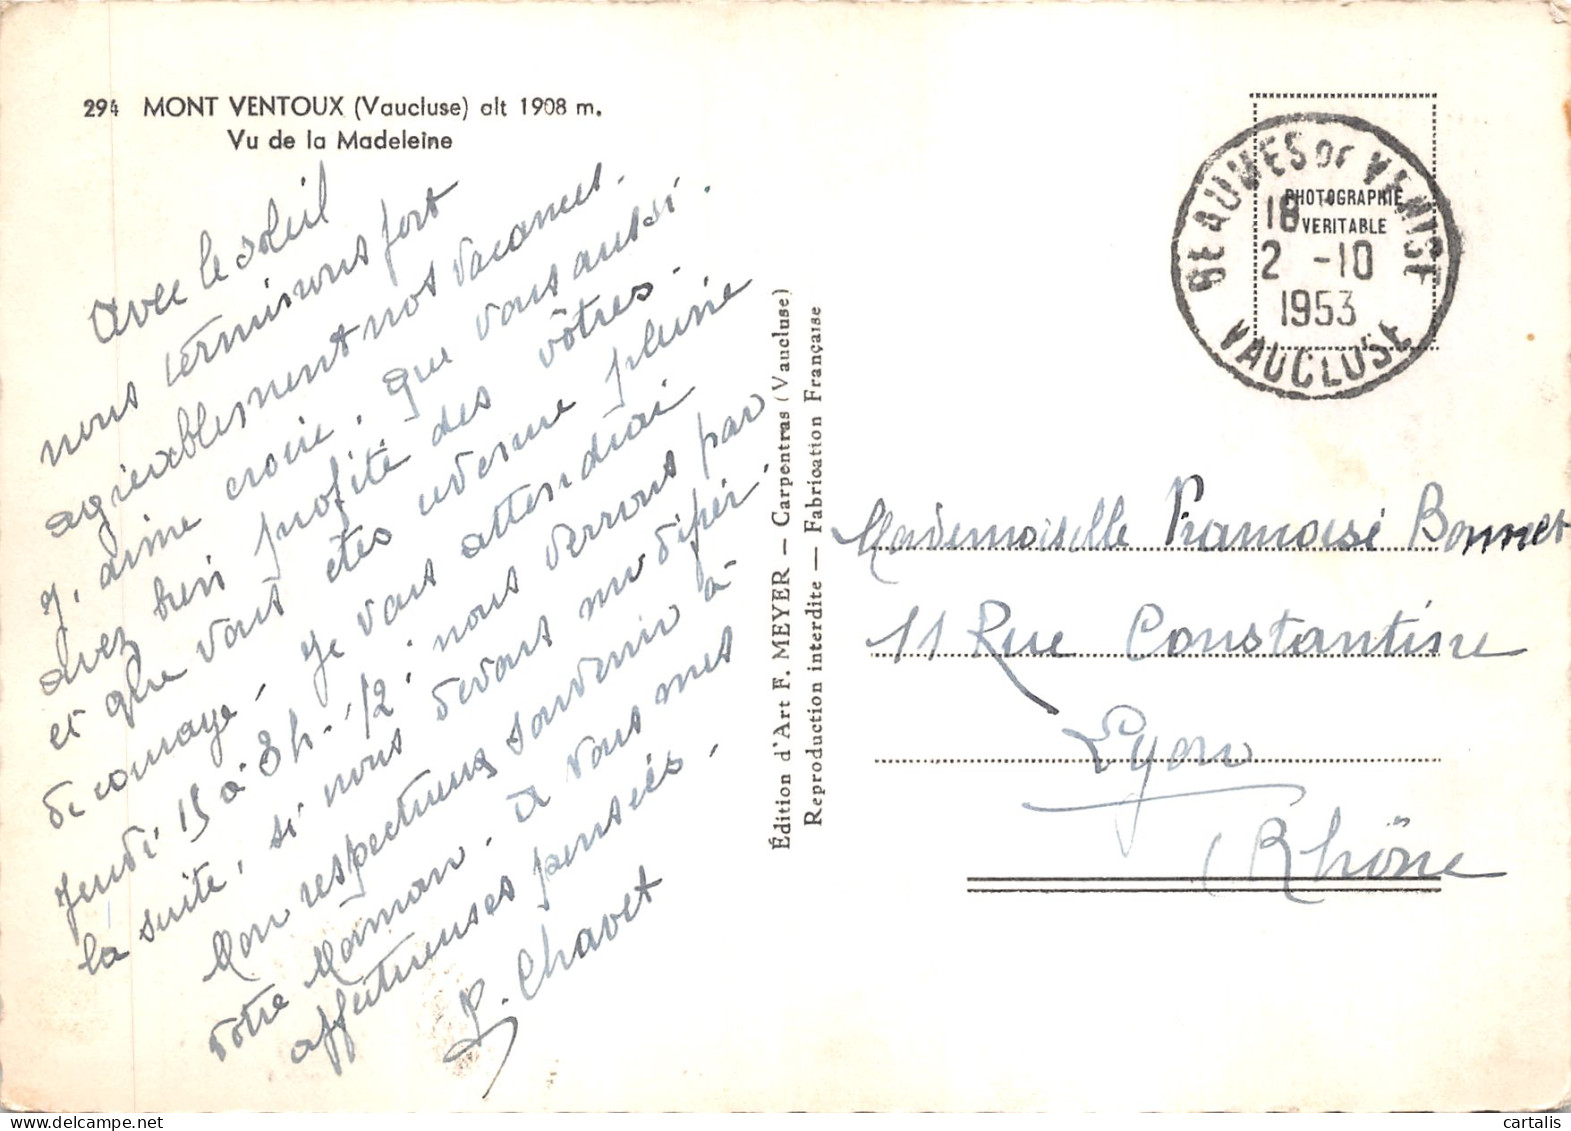 294 MONT VENTOUX (Vaucluse) alt 1908 m.
Vu de la Madeleine
Avec le soleil
nous terminons fort
agréablement nos vacances.
J'aime croire, que vous aussi.
avez bien profité des vôtres.
et que vous êtes pleine
de courage, Je vous attendrai
Jeudi 15 à 8h. 1/2. nous verrons par
la suite, si nous devons modifier.
Mon respectueux souvenir à
votre Maman. à vous mes
affectueuses pensées.
Chavet
Édition d'Art F. MEYER — Carpentras (Vaucluse)
Reproduction interdite — Fabrication Française
PHOTOGRAPHIE
VERITABLE
BEAUMES DE VENISE
18
2 -10
1953
VAUCLUSE
Mademoiselle Françoise Bonnet
11 Rue Constantine
Lyon
(Rhône
cartalis